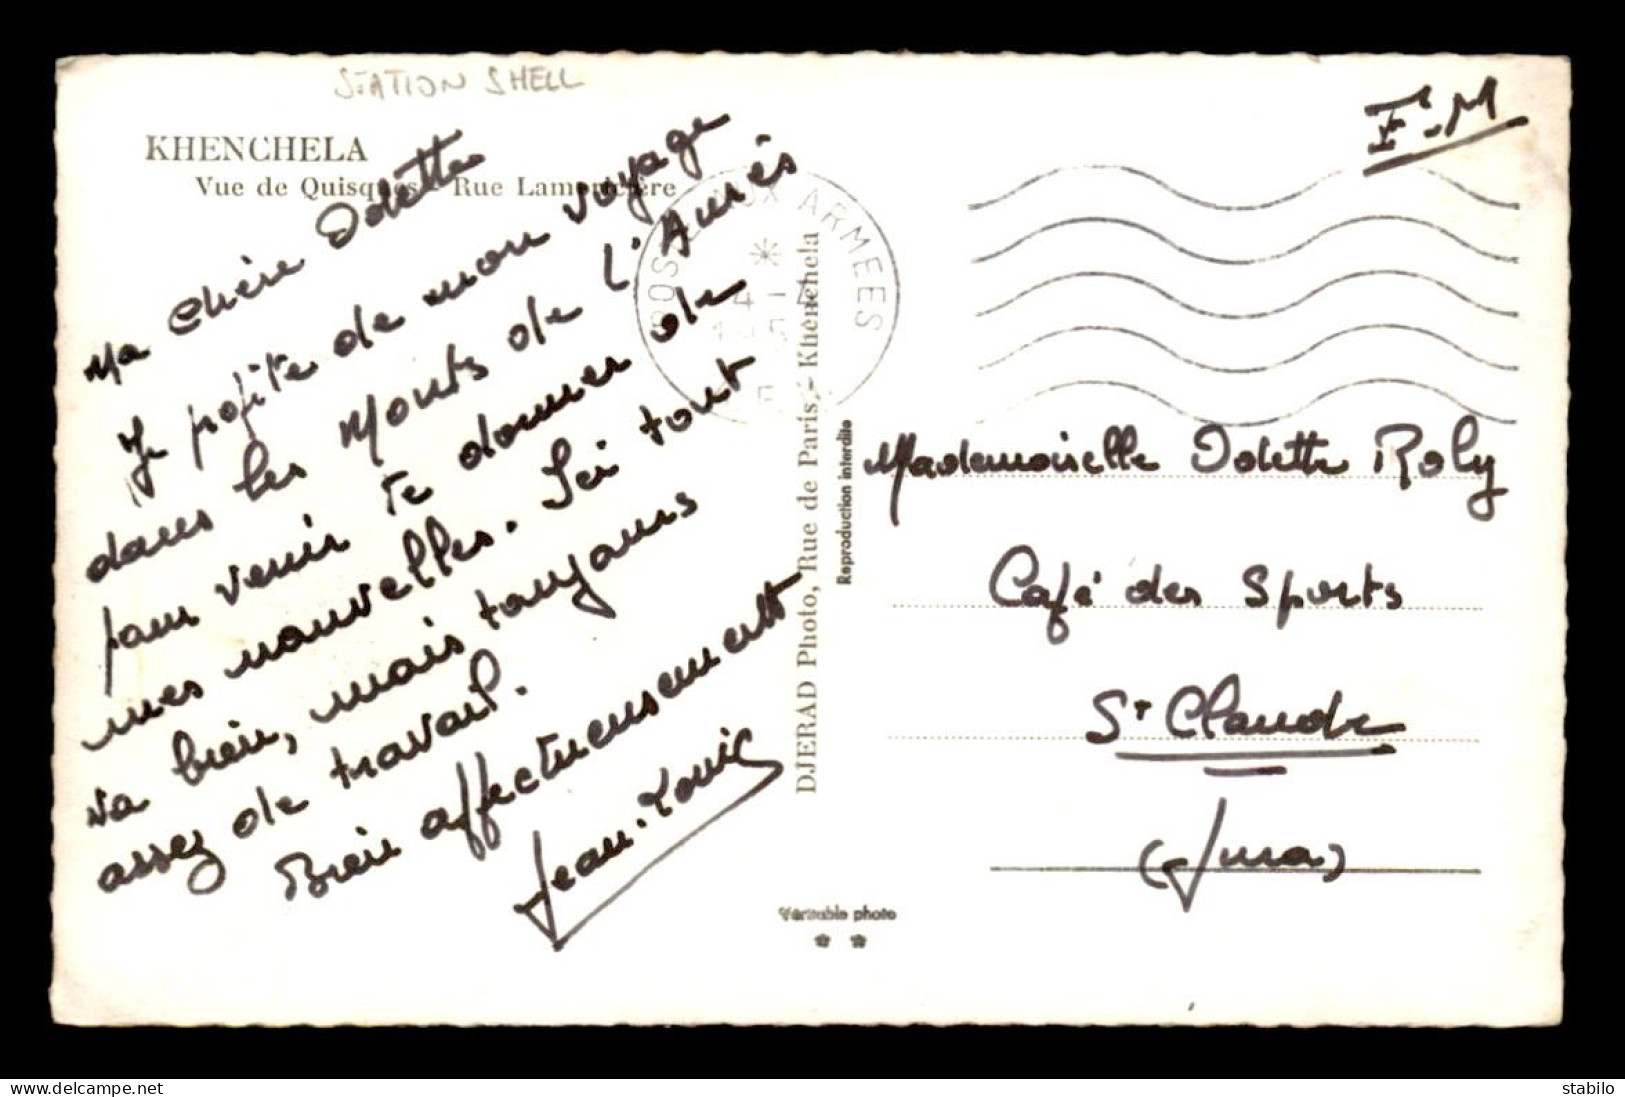 STATION SHELL
KHENCHELA
Vue de Quisques - Rue Lamoricière
Ma chère Odette
Je profite de mon voyage
dans les Monts de l'Aurès
pour venir te donner de
mes nouvelles. Ici tout
va bien, mais toujours
assez de travail.
Bien affectueusement
Jean-Louis
POSTE AUX ARMEES
*
DJERAD Photo, Rue de Paris,- Khenchela
Reproduction interdite
Véritable photo
F.M
Mademoiselle Odette Roly
Café des Sports
St Claude
(Jura)
stabilo